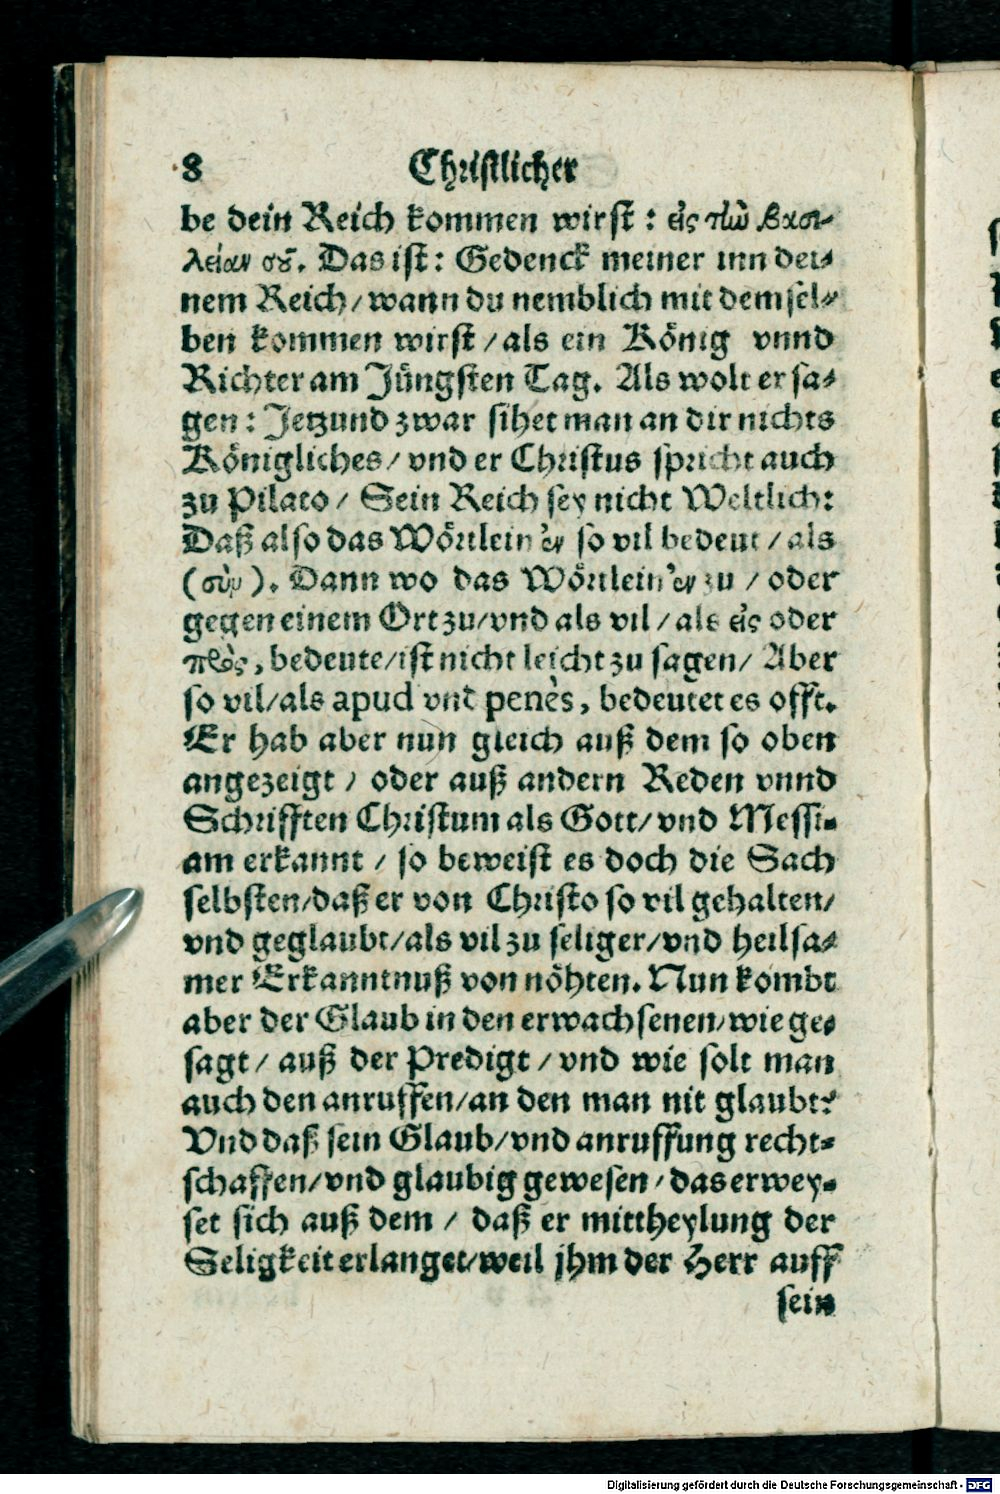 8 Christlicher
be dein Reich kommen wirst: εἰς τὴν βασι-
λείαν σȣ͂. Das ist: Gedenck meiner inn dei-
nem Reich/ wann du nemblich mit demsel-
ben kommen wirst/ als ein König vnnd
Richter am Jüngsten Tag. Als wolt er sa-
gen: Jetzund zwar sihet man an dir nichts
Königliches/ vnd er Christus spricht auch
zu Pilato/ Sein Reich sey nicht Weltlich:
Daß also das Wörtlein ἐν so vil bedeut/ als
(σὺν). Dann wo das Wörtlein ἐν zu/ oder
gegen einem Ort zu/ vnd als vil/ als εἰς oder
πρὸς, bedeute/ ist nicht leicht zu sagen/ Aber
so vil/ als apud vnd penès, bedeutet es offt.
Er hab aber nun gleich auß dem so oben
angezeigt/ oder auß andern Reden vnnd
Schrifften Christum als Gott/ vnd Messi-
am erkannt/ so beweist es doch die Sach
selbsten/ daß er von Christo so vil gehalten/
vnd geglaubt/ als vil zu seliger/ vnd heilsa-
mer Erkanntnuß von nöhten. Nun kombt
aber der Glaub in den erwachsenen/ wie ge-
sagt/ auß der Predigt/ vnd wie solt man
auch den anruffen/ an den man nit glaubt?
Vnd daß sein Glaub/ vnd anruffung recht-
schaffen/ vnd glaubig gewesen/ das erwey-
set sich auß dem/ daß er mittheylung der
Seligkeit erlanget/ weil jhm der Herr auff
sein
Digitalisierung gefördert durch die Deutsche Forschungsgemeinschaft - DFG